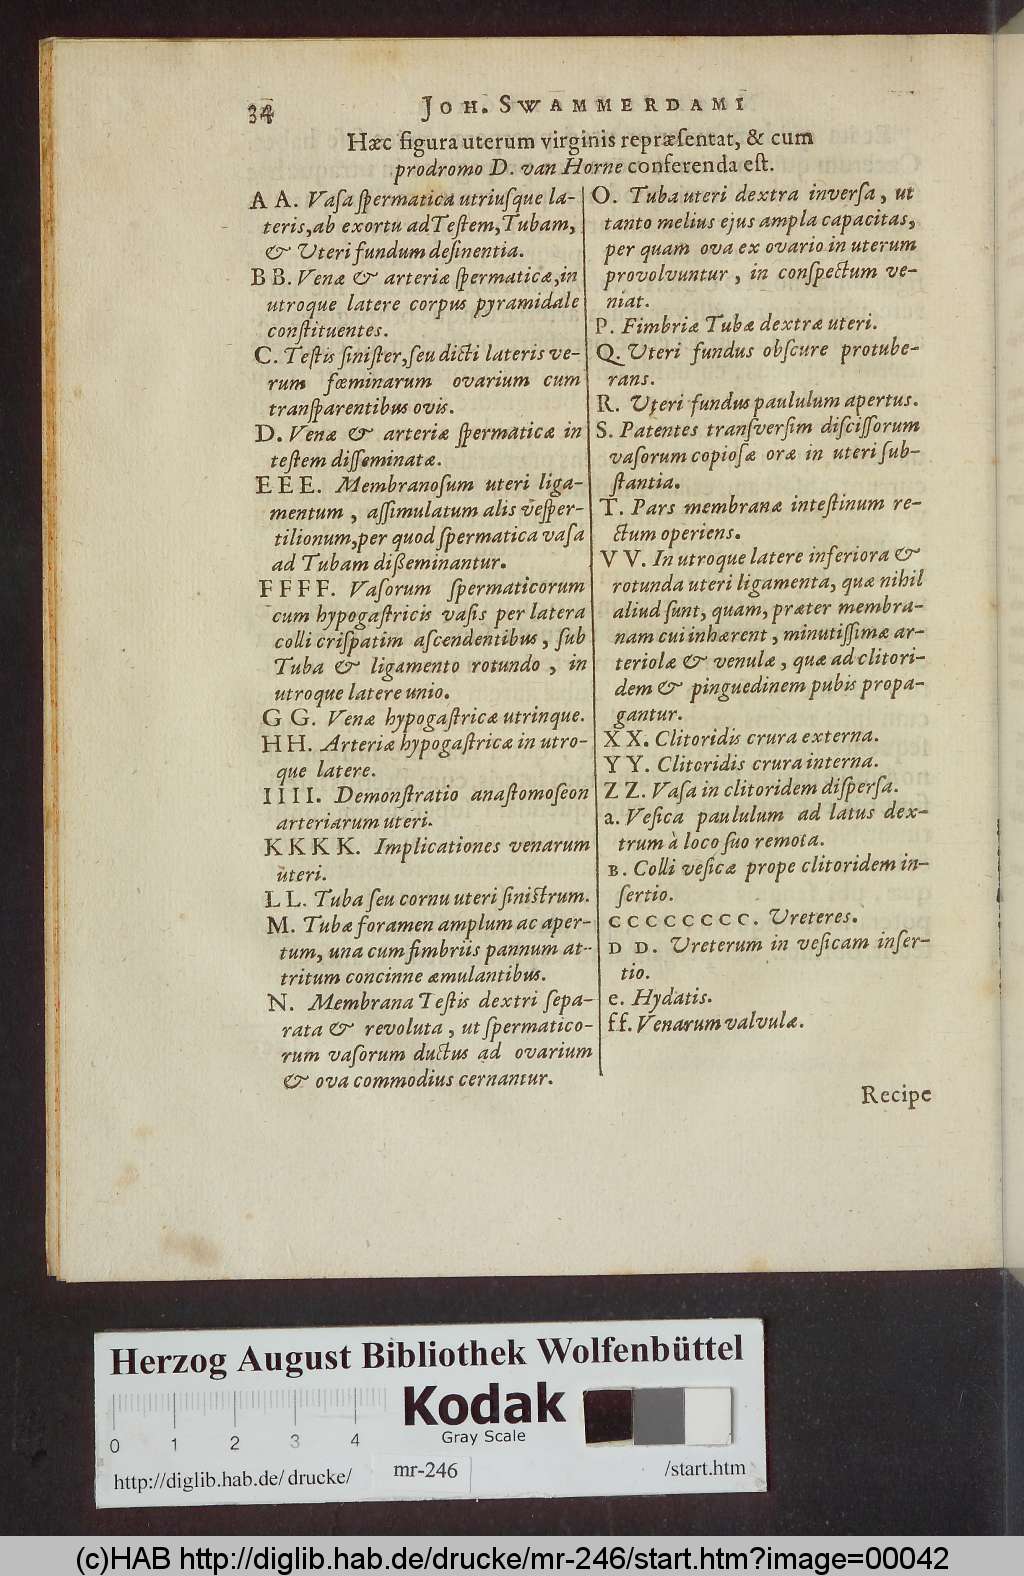 34
JOH. SWAMMERDAMI
Hæc figura uterum virginis repræſentat, & cum
prodromo D. van Horne conferenda eſt.
A A. Vaſa ſpermatica utriuſque la-
teris, ab exortu ad Teſtem, Tubam,
& Uteri fundum deſinentia.
B B. Venæ & arteriæ ſpermaticæ, in
utroque latere corpus pyramidale
conſtituentes.
C. Teſtis ſiniſter, ſeu dicti lateris ve-
rum fœminarum ovarium cum
tranſparentibus ovis.
D. Venæ & arteriæ ſpermaticæ in
teſtem diſſeminatæ.
E E E. Membranoſum uteri liga-
mentum, aſſimulatum alis veſper-
tilionum, per quod ſpermatica vaſa
ad Tubam dißeminantur.
F F F F. Vaſorum ſpermaticorum
cum hypogaſtricis vaſis per latera
colli criſpatim aſcendentibus, ſub
Tuba & ligamento rotundo, in
utroque latere unio.
G G. Venæ hypogaſtricæ utrinque.
H H. Arteriæ hypogaſtricæ in utro-
que latere.
I I I I. Demonſtratio anaſtomoſeon
arteriarum uteri.
K K K K. Implicationes venarum
uteri.
L L. Tuba ſeu cornu uteri ſiniſtrum.
M. Tubæ foramen amplum ac aper-
tum, una cum fimbriis pannum at-
tritum concinne æmulantibus.
N. Membrana Teſtis dextri ſepa-
rata & revoluta, ut ſpermatico-
rum vaſorum ductus ad ovarium
& ova commodius cernantur.
O. Tuba uteri dextra inverſa, ut
tanto melius ejus ampla capacitas,
per quam ova ex ovario in uterum
provolvuntur, in conſpectum ve-
niat.
P. Fimbriæ Tubæ dextræ uteri.
Q. Uteri fundus obſcure protube-
rans.
R. Uteri fundus paululum apertus.
S. Patentes tranſverſim diſciſſorum
vaſorum copioſæ oræ in uteri ſub-
ſtantia.
T. Pars membranæ inteſtinum re-
ctum operiens.
V V. In utroque latere inferiora &
rotunda uteri ligamenta, quæ nihil
aliud ſunt, quam, præter membra-
nam cui inhærent, minutiſſimæ ar-
teriolæ & venulæ, quæ ad clitori-
dem & pinguedinem pubis propa-
gantur.
X X. Clitoridis crura externa.
Y Y. Clitoridis crura interna.
Z Z. Vaſa in clitoridem diſperſa.
a. Veſica paululum ad latus dex-
trum à loco ſuo remota.
B. Colli veſicæ prope clitoridem in-
ſertio.
C C C C C C C C. Ureteres.
D D. Ureterum in veſicam inſer-
tio.
e. Hydatis.
ff. Venarum valvulæ.
Recipe
Herzog August Bibliothek Wolfenbüttel
Kodak
Gray Scale
0 1 2 3 4
http://diglib.hab.de/drucke/ mr-246 /start.htm
(c)HAB http://diglib.hab.de/drucke/mr-246/start.htm?image=00042